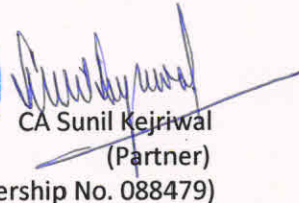 CA Sunil Kejriwal
(Partner)
ership No. 088479)